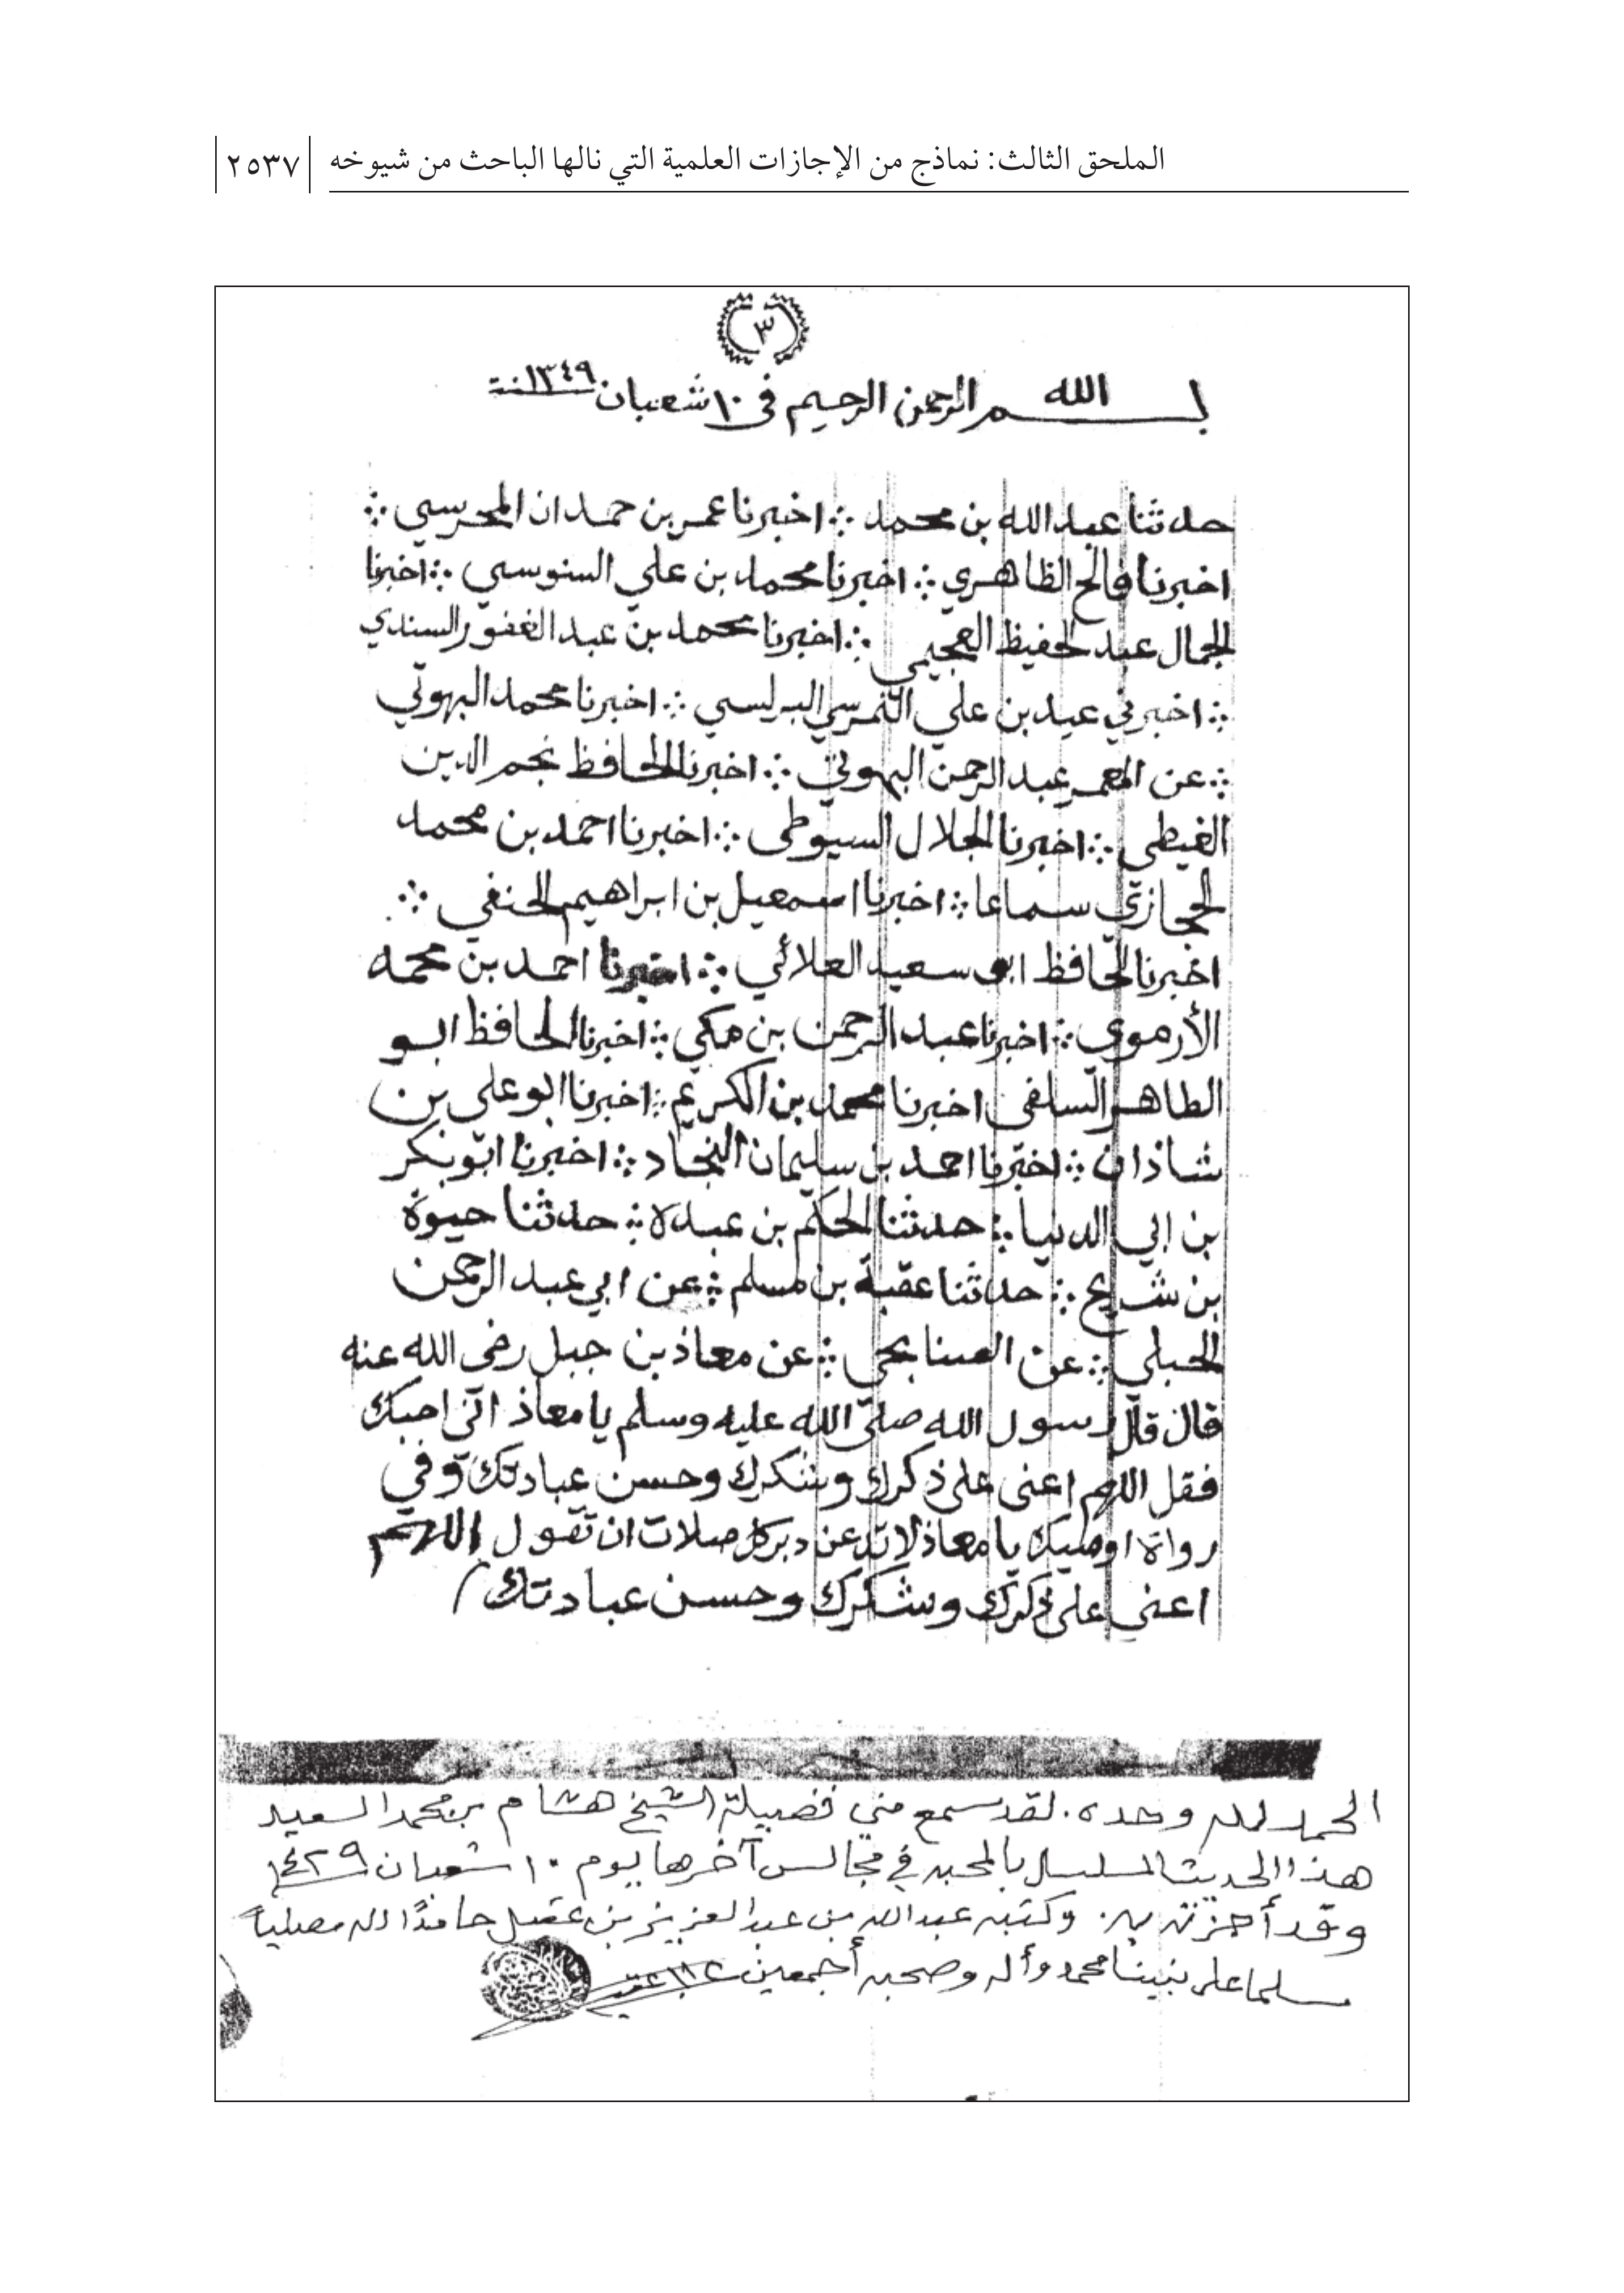 الملحق الثالث: نماذج من الإجازات العلمية التي نالها الباحث من شيوخه
٢٥٣٧
٣
بسم الله الرحمن الرحيم في ١٠ شعبان ١٣٤٩ سنة
حدثنا عبد الله بن محمد ∴ اخبرنا عمر بن حمدان المحرسي ∴
اخبرنا فالح الظاهري ∴ اخبرنا محمد بن علي السنوسي ∴ اخبرنا
الجمال عبد الحفيظ العجيمي ∴ اخبرنا محمد بن عبد الغفور السندي
∴ اخبرني عيد بن علي النمرسي البرلسي ∴ اخبرنا محمد البهوتي
∴ عن المعمر عبد الرحمن البهوتي ∴ اخبرنا الحافظ نجم الدين
الغيطي ∴ اخبرنا الجلال السيوطي ∴ اخبرنا احمد بن محمد
الحجازي سماعا ∴ اخبرنا اسمعيل بن ابراهيم الحنفي ∴
اخبرنا الحافظ ابو سعيد العلائي ∴ اخبرنا احمد بن محمد
الأرموي ∴ اخبرنا عبد الرحمن بن مكي ∴ اخبرنا الحافظ ابو
الطاهر السلفي اخبرنا محمد بن الكريم ∴ اخبرنا ابو علي بن
شاذان ∴ اخبرنا احمد بن سليمان النجاد ∴ اخبرنا ابو بكر
بن ابي الدنيا ∴ حدثنا الحكم بن عبدة ∴ حدثنا حيوة
بن شريح ∴ حدثنا عقبة بن مسلم ∴ عن ابي عبد الرحمن
الحبلي ∴ عن الصنابحي ∴ عن معاذ بن جبل رضي الله عنه
قال قال رسول الله صلى الله عليه وسلم يا معاذ اني احبك
فقل اللهم اعني على ذكرك وشكرك وحسن عبادتك وفي
رواة اوصيك يا معاذ لا تدعن دبر كل صلات ان تقول اللهم
اعني على ذكرك وشكرك وحسن عبادتك
الحمد لله وحده. لقد سمع مني فضيلة الشيخ هشام بن محمد السعيد
هذا الحديث المسلسل بالمحبة في مجالس آخرها يوم ١٠ شعبان ١٤٢٩
وقد أجزته به. وكتبه عبد الله بن عبد العزيز بن عقيل حامدًا لله مصلياً
مسلما على نبينا محمد وآله وصحبه أجمعين